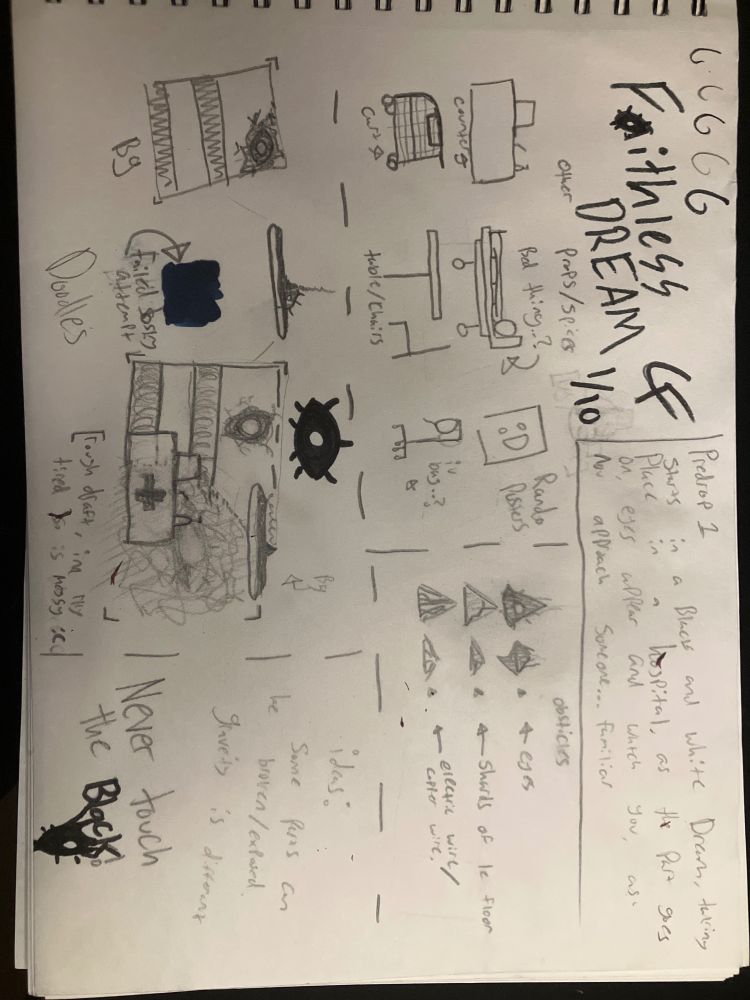 G G G G G
Faithless
DREAM
1/10
Predrop 1
Starts in a Black and white Dream, taking
place in a hospital, as the Part goes
on, eyes appear and watch you, as
you approach someone... familiar
other props/spices
counters
Bed thing..?
Rando
Posters
cart
table/Chairs
iv
bag..?
obsticles
eyes
shards of le floor
electric wire/
wire.
Bg
Bg
failed
attempt
Doodles
[rough draft, im
tired
ideas:
Some parts can
be broken/exposed
gravity is different
Never touch
the Black